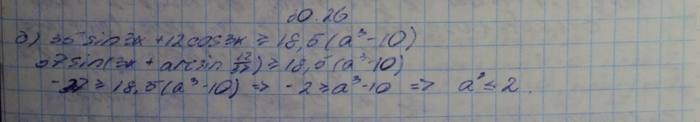 60.26
б) 35 sin 3x + 12 cos 3x ≥ 18,5(a³-10)
37 sin(3x + arcsin 12/37) ≥ 18,5(a³-10)
-37 ≥ 18,5(a³-10) => -2 ≥ a³-10 => a³ ≤ 2.